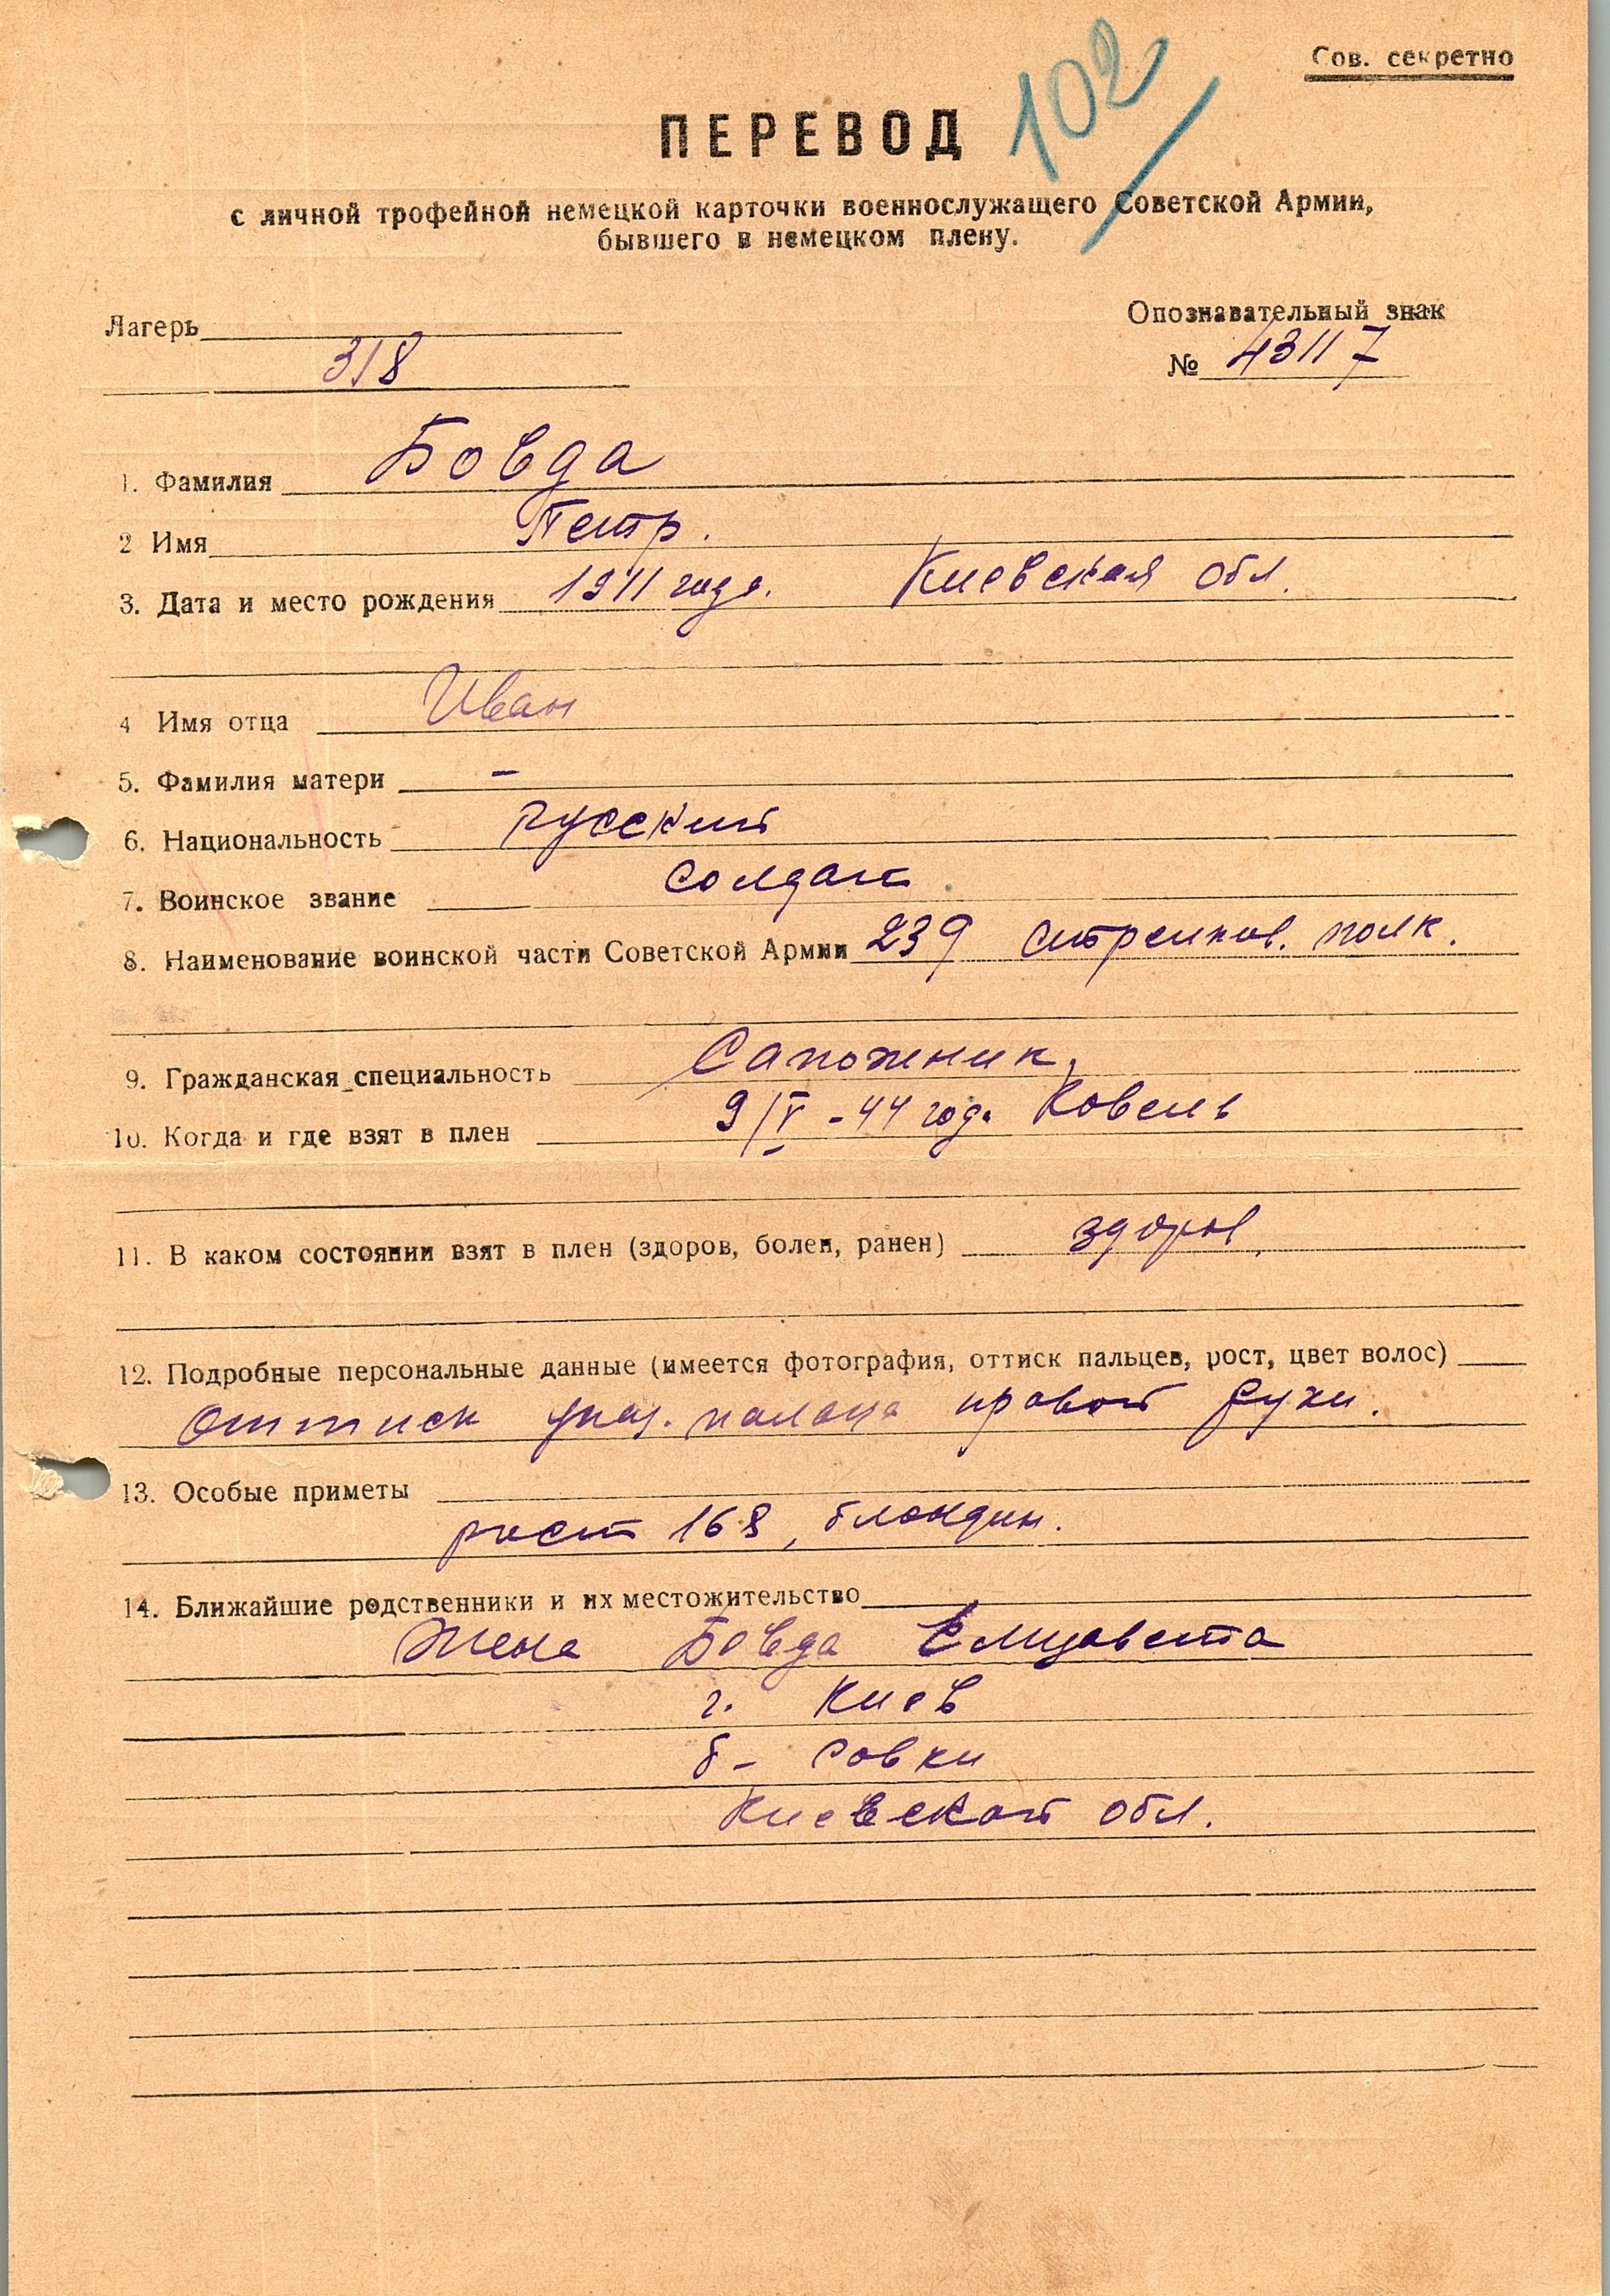 Сов. секретно
102
ПЕРЕВОД
с личной трофейной немецкой карточки военнослужащего Советской Армии,
бывшего в немецком плену.
Лагерь
318
Опознавательный знак
№ 43117
1. Фамилия Бовда
2 Имя Петр.
3. Дата и место рождения 1911 года. Киевская обл.
4 Имя отца Иван
5. Фамилия матери –
6. Национальность русский
7. Воинское звание солдат
8. Наименование воинской части Советской Армии 239 стрелков. полк.
9. Гражданская специальность Сапожник.
10. Когда и где взят в плен 9/V - 44 года Ковель
11. В каком состоянии взят в плен (здоров, болен, ранен) здоров.
12. Подробные персональные данные (имеется фотография, оттиск пальцев, рост, цвет волос)
Оттиск указ. пальца правой руки.
13. Особые приметы
рост 168, блондин.
14. Ближайшие родственники и их местожительство
Жена Бовда Елизавета
г. Киев
б- Совки
Киевской обл.